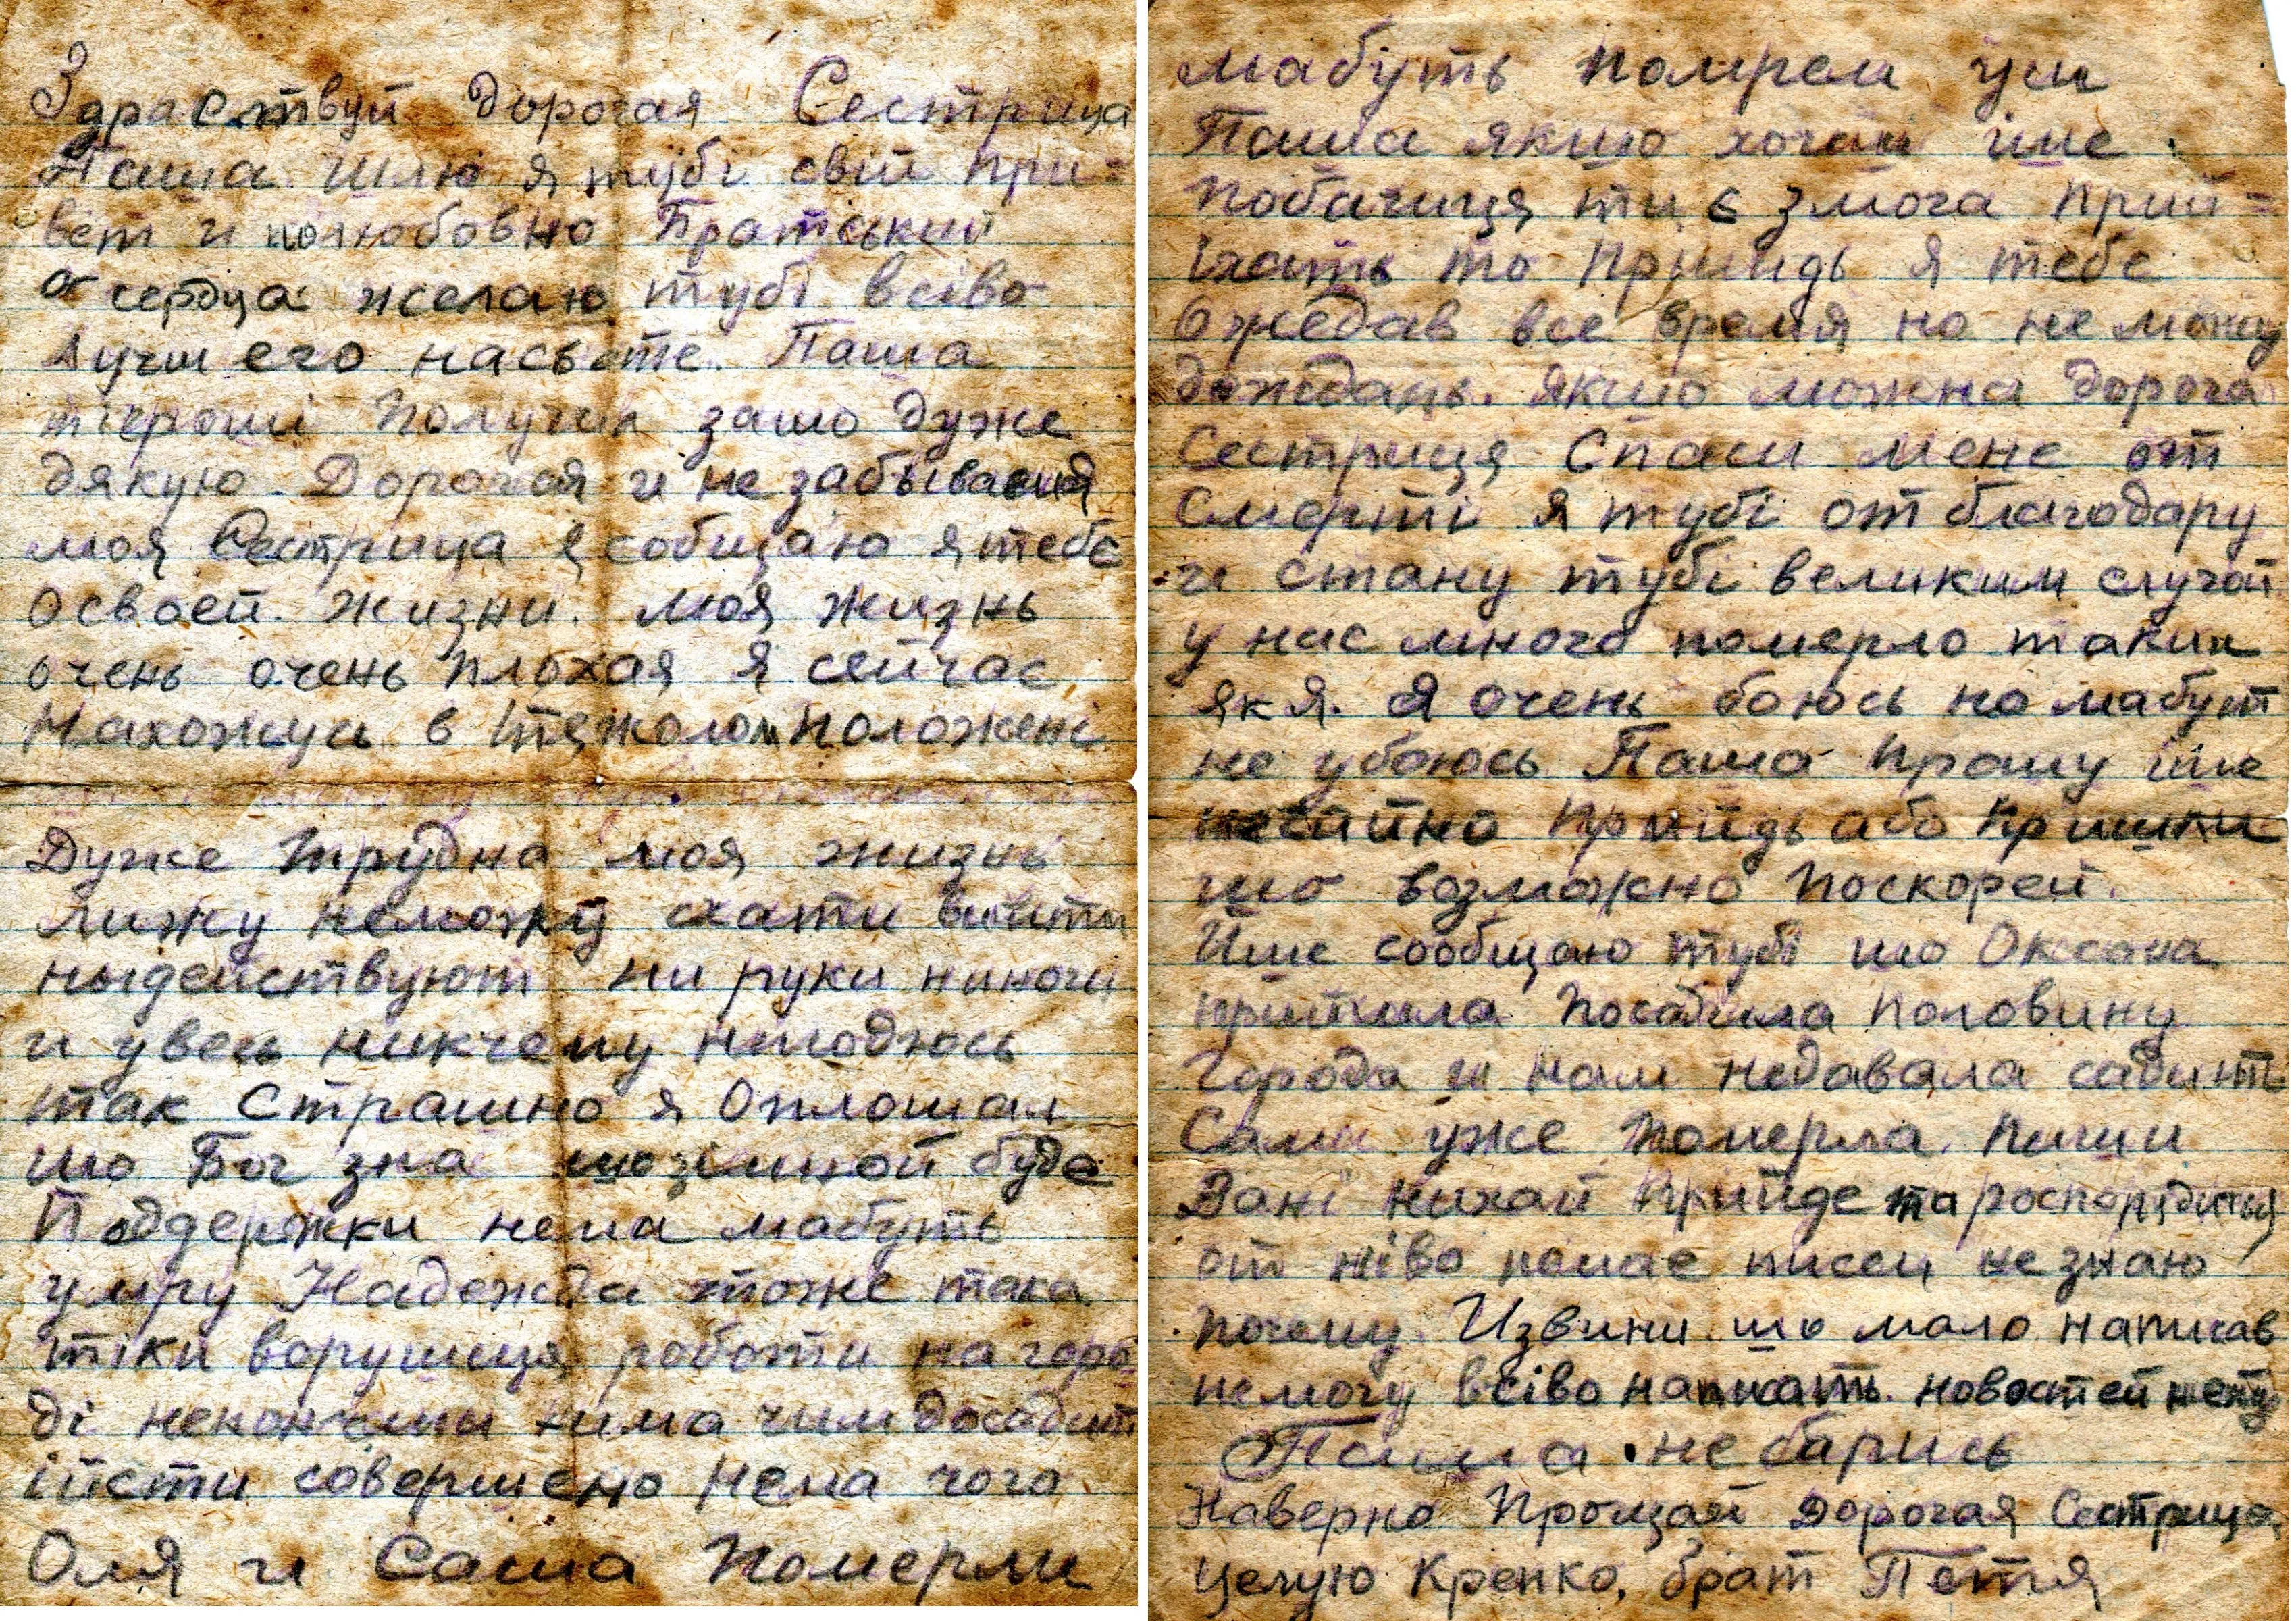 Здраствуй дорогая Сестрица
Паша шлю я тубі свій при=
вет и полюбовно Братський
от сердца желаю тубі всіво
лучшего насвєте. Паша
ті гроші Получил зашо дуже
дякую. Дорогая и не забываєма
моя Сестрица я собщаю я тебє
освоей жизни. Моя жизнь
очень очень плохая я сейчас
нахожусь в тяжолом положені
Дуже трудна моя жизнь
лижу неможу схати вийти
ныдействуют ни руки ниноги
и увесь никчему негоджюсь
так Страшно я Оплошал
шо Бог зна шо зімной буде
Поддержки нема мабуть
умру Надежда тоже така
тіки ворушиця роботи на горо
ді неконченни нима чим досадит
ійсти совершено нема чого
Оля и Саша померли
мабуть помрем уси
Паша якшо хочаш іше
побачиця ти є змога прий=
їхать то прыйидь я тебе
Ожедав все время но не можу
дождаць. якшо можна дорога
Сестриця Спаси мене от
Смерті я тубі отблагодару
и стану тубі великим слугой
у нас много померло таких
як я. Я очень боюсь но мабут
не убоюсь Паша прошу іше
негайно Прийидь або Пришли
шо возможно поскорей.
Йше сообщаю тубі шо Оксана
прийшла Посадила половину
города и нам недавала садить
Сама уже померла. пиши
Вані нихай прийде та роспорядиться
от ніво немає писем не знаю
почему. Извини шо мало написав
немогу всіво написать. новостей нету
Паша не барись
Наверно Прощай Дорогая Сестрица
Целую Крепко, брат Петя